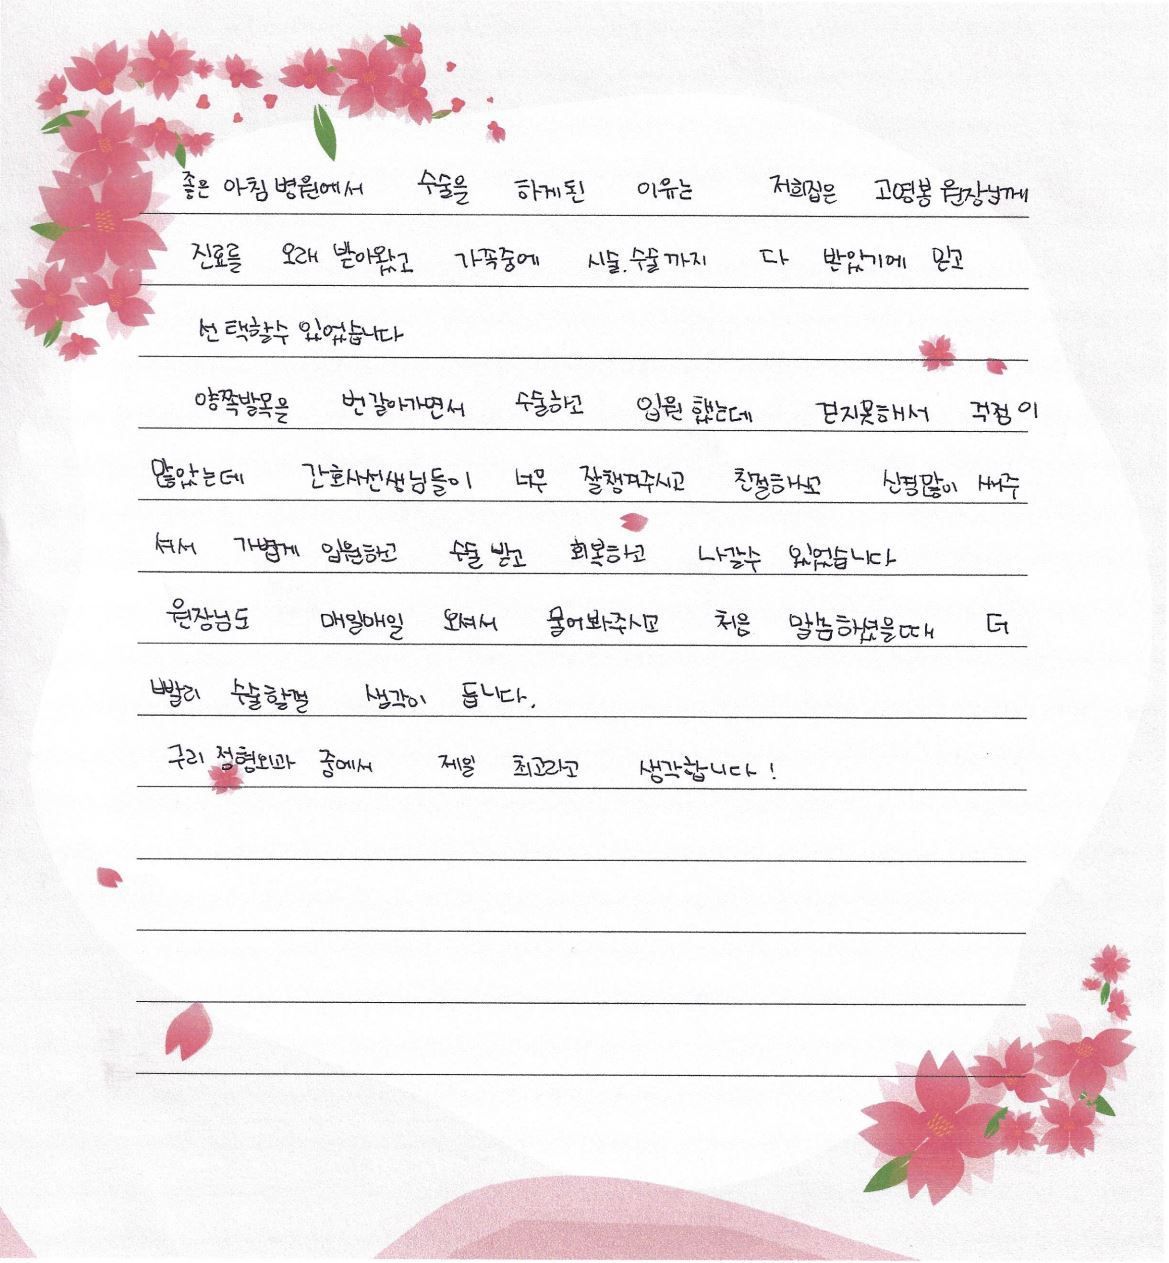 좋은 아침 병원에서 수술을 하게된 이유는 저희집은 고영봉 원장님께
진료를 오래 받아왔고 가족중에 시술.수술까지 다 받았기에 믿고
선택할수 있었습니다
양쪽발목을 번갈아가면서 수술하고 입원했는데 걷지못해서 걱정이
많았는데 간호사선생님들이 너무 잘챙겨주시고 친절하시고 신경많이 써주
셔서 가볍게 입원하고 수술 받고 회복하고 나갈수 있었습니다
원장님도 매일매일 오셔서 물어봐주시고 처음 말씀하셨을때 더
빨리 수술할껄 생각이 듭니다.
구리 정형외과 중에서 제일 최고라고 생각합니다!